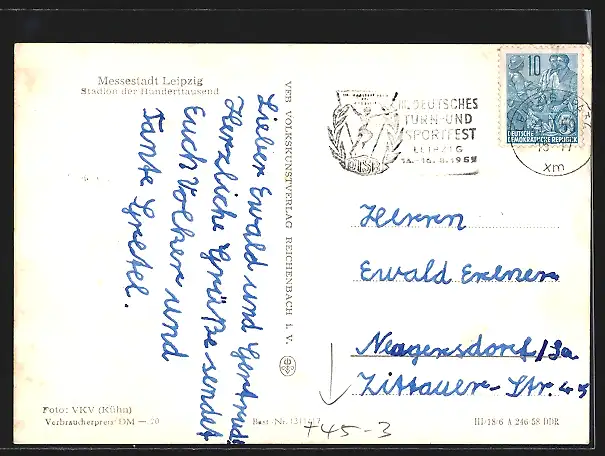 Messestadt Leipzig
Stadion der Hunderttausend
Lieber Ewald und Gertrud,
Herzliche Grüße sendet
Euch Volker und
Tante Gretel.
VEB VOLKSKUNSTVERLAG REICHENBACH i. V.
III. DEUTSCHES
TURN-UND
SPORTFEST
LEIPZIG
10
DEUTSCHE
DEMOKRATISCHE REPUBLIK
xm
Herrn
Ewald Exlner
Neugersdorf/Sa
Zittauer-Str. 45
Foto: VKV (Kühn)
Verbraucherpreis DM —.20
Best.-Nr.
T45-3
III/18/6 A 246 58 DDR